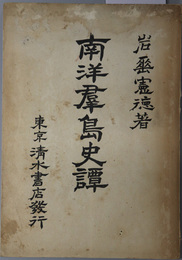 岩垂憲徳著
南洋羣島史譚
東京 清水書店發行